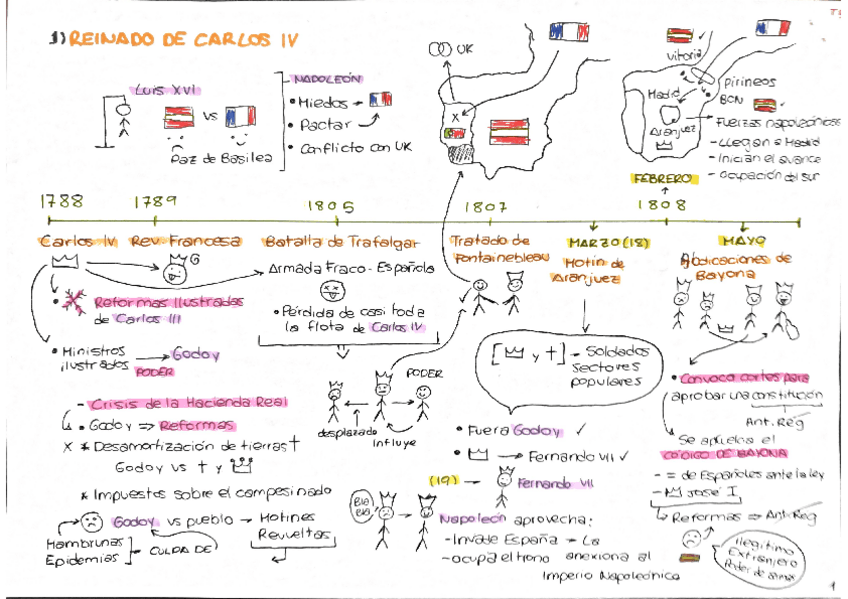 1) REINADO DE CARLOS IV
Luis XVI
VS
Paz de Basilea
NAPOLEÓN
• Miedos →
• Pactar
• Conflicto con UK
UK
x
Vitoria
Pirineos
Madrid
BCN
Aranjuez
Fuerzas napoleónicas
- Llegan a Madrid
- Inician el avance
- Ocupación del sur
FEBRERO
1788
1789
1805
1807
1808
Carlos IV
Rev. Francesa
Batalla de Trafalgar
Tratado de
Fontainebleau
MARZO (18)
Motín de
Aranjuez
MAYO
Abdicaciones de
Bayona
G
Armada Fraco-Española
• Pérdida de casi toda
la flota de Carlos IV
Reformas Ilustradas
de Carlos III
• Ministros
ilustrados → Godoy
PODER
- Crisis de la Hacienda Real
• Godoy => Reformas
x * Desamortización de tierras †
Godoy vs † y
* Impuestos sobre el campesinado
Godoy vs pueblo → Motines
Revueltas
Hambrunas
Epidemias
CULPA DE
PODER
desplazado
Influye
Bla
Bla
[ y †] - Soldados
sectores
populares
• Fuera Godoy ✓
• → Fernando VII ✓
(19) → Fernando VII
Napoleón aprovecha:
- Invade España → La
- ocupa el trono anexiona al
Imperio Napoleónico
• Convoca cortes para
aprobar una constitución
Ant. Reg
Se aprueba el
CÓDIGO DE BAYONA
- = de Españoles ante la ley
- José I
Reformas => Ant. Reg
Ilegítimo
Extranjero
Poder de armas
1